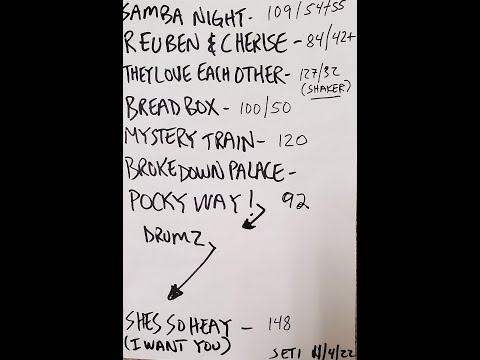 SAMBA NIGHT- 109/54+55
REUBEN & CHERISE - 84/42+
THEY LOVE EACH OTHER- 127/32
(SHAKER)
BREAD BOX - 100/50
MYSTERY TRAIN- 120
BROKEDOWN PALACE -
POCKY WAY! 92
DRUMZ
SHES SO HEAY - 148
(I WANT YOU)
SET1 11/4/22